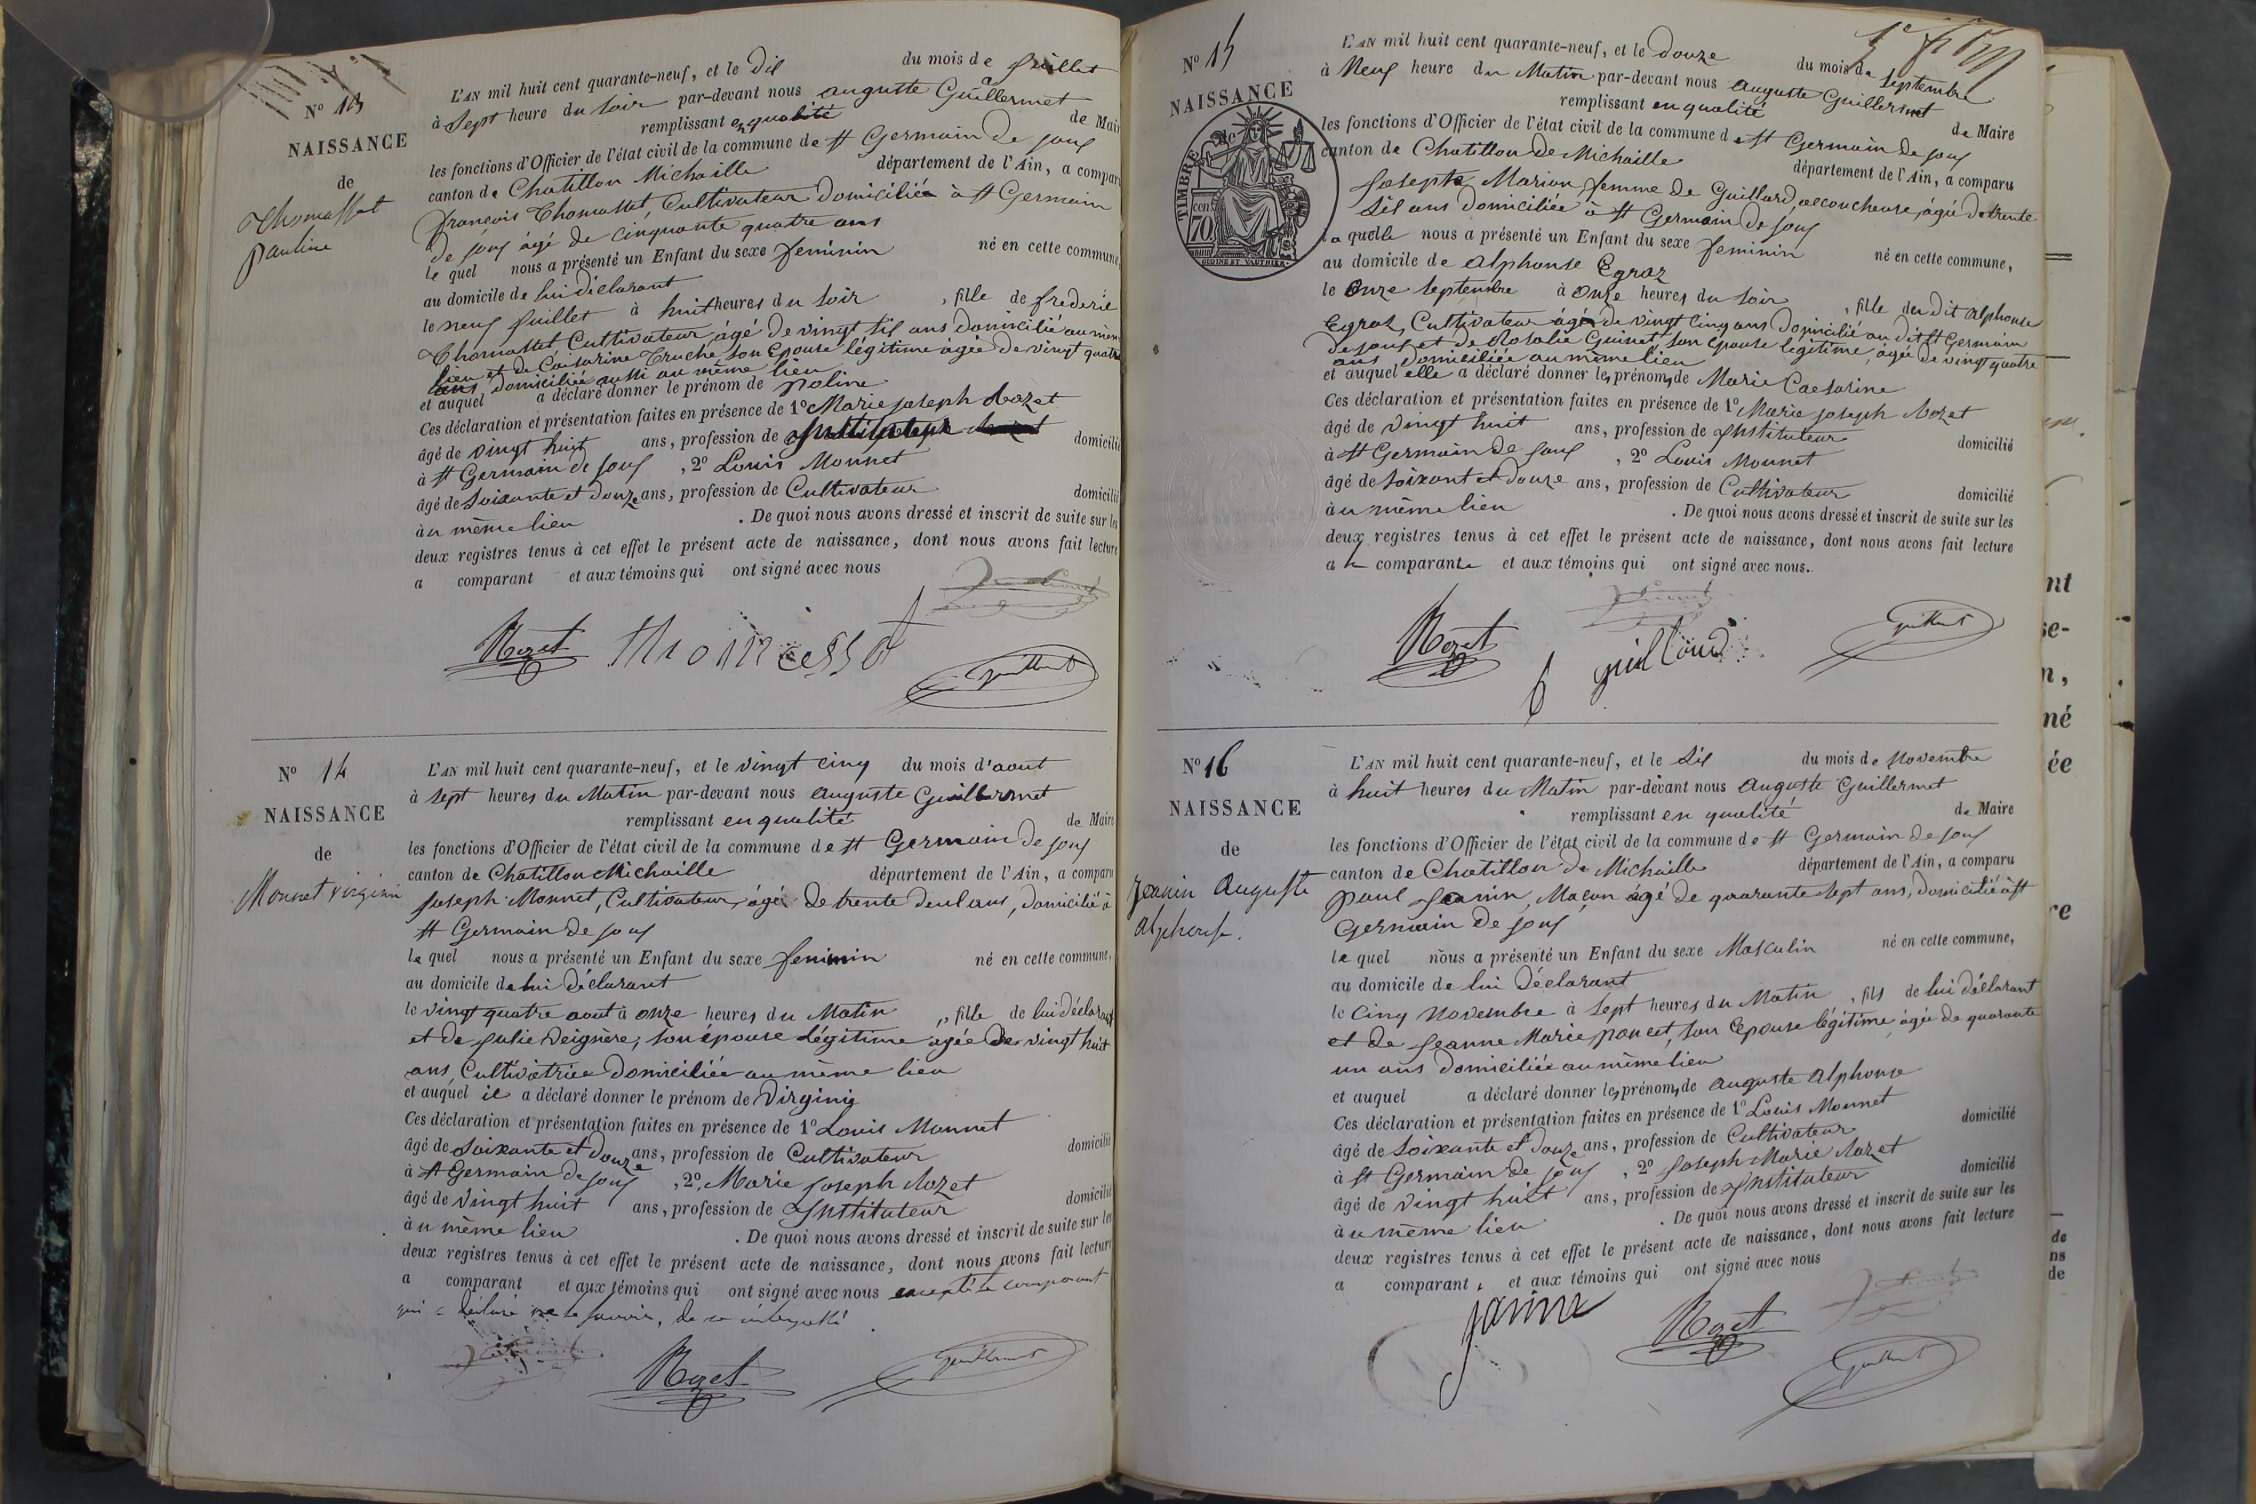 N° 13
NAISSANCE
de
Thomasset
pauline
L'AN mil huit cent quarante-neuf, et le dix du mois de juillet
à sept heure du soir par-devant nous auguste Guillermet
remplissant en qualité de Mair
les fonctions d'Officier de l'état civil de la commune de st Germain de joux
canton de Chatillon Michaille département de l'Ain, a compar
françois Thomasset, Cultivateur domiciliée à st Germain
de joux âgé de cinquante quatre ans
le quel nous a présenté un Enfant du sexe feminin né en cette commune,
au domicile de lui déclarant
le neuf juillet à huit heures du soir , fille de frederic
Thomasset Cultivateur, âgé de vingt six ans domicilié au mem
lieu et de Caesarine Truche, son Epouse légitime âgée de vingt quatre
ans domiciliée aussi au même lieu
et auquel a déclaré donner le prénom de poline
Ces déclaration et présentation faites en présence de 1° Marie joseph Rozet
âgé de vingt huit ans, profession de domicilié
à st Germain de joux , 2° Louis Monnet
âgé de soixante et douze ans, profession de Cultivateur domicilié
à u même lieu . De quoi nous avons dressé et inscrit de suite sur les
deux registres tenus à cet effet le présent acte de naissance, dont nous avons fait lecture
a comparant et aux témoins qui ont signé avec nous
Rozet Thomasset
Guillermet
N° 14
NAISSANCE
de
Monnet virginie
L'AN mil huit cent quarante-neuf, et le vingt cinq du mois d'aout
à sept heures du Matin par-devant nous auguste Guillermet
remplissant en qualité de Maire
les fonctions d'Officier de l'état civil de la commune de st Germain de joux
canton de Chatillon Michaille département de l'Ain, a comparu
joseph Monnet, Cultivateur, âgé de trente deux ans, domicilié à
st Germain de joux
le quel nous a présenté un Enfant du sexe feminin né en cette commune,
au domicile de lui déclarant
le vingt quatre aout à onze heures du Matin , fille de lui déclarant
et de julie , son épouse légitime âgée de vingt huit
ans, Cultivatrice domiciliée au même lieu
et auquel il a déclaré donner le prénom de virginie
Ces déclaration et présentation faites en présence de 1° Louis Monnet
âgé de soixante et douze ans, profession de Cultivateur domicilié
à st Germain de joux , 2° Marie joseph Rozet
âgé de vingt huit ans, profession de Instituteur domicilié
à u même lieu . De quoi nous avons dressé et inscrit de suite sur les
deux registres tenus à cet effet le présent acte de naissance, dont nous avons fait lecture
a comparant et aux témoins qui ont signé avec nous excepté le comparant
qui a déclaré ne le savoir, de ce interpellé.
Rozet Guillermet
N° 15
NAISSANCE
de
TIMBRE
70 cent
L'AN mil huit cent quarante-neuf, et le douze du mois de septembre
à Neuf heure du Matin par-devant nous auguste Guillermet
remplissant en qualité de Maire
les fonctions d'Officier de l'état civil de la commune de st Germain de joux
canton de Chatillon de Michaille département de l'Ain, a comparu
josepte Marion, femme de Guillard, accoucheuse, âgée de trente
six ans domiciliée à st Germain de joux
la quelle nous a présenté un Enfant du sexe feminin né en cette commune,
au domicile de alphonse Egraz
le onze septembre à onze heures du soir , fille du dit alphonse
Egraz, Cultivateur âgé de vingt cinq ans domicilié au dit st Germain
de joux et de Rosalie Guinet, son épouse légitime, âgée de vingt quatre
ans, domiciliée au même lieu
et auquel elle a déclaré donner les prénoms de Marie Caesarine
Ces déclaration et présentation faites en présence de 1° Marie joseph Rozet
âgé de vingt huit ans, profession de Instituteur domicilié
à st Germain de joux , 2° Louis Monnet
âgé de soixant et douze ans, profession de Cultivateur domicilié
à u même lieu . De quoi nous avons dressé et inscrit de suite sur les
deux registres tenus à cet effet le présent acte de naissance, dont nous avons fait lecture
a la comparante et aux témoins qui ont signé avec nous.
Rozet f guilloud
N° 16
NAISSANCE
de
jeanin auguste
alphonse.
L'AN mil huit cent quarante-neuf, et le six du mois de Novembre
à huit heures du Matin par-devant nous auguste Guillermet
remplissant en qualité de Maire
les fonctions d'Officier de l'état civil de la commune de st Germain de joux
canton de Chatillon de Michaille département de l'Ain, a comparu
paul jeanin, Maçon âgé de quarante sept ans, domicilié à st
Germain de joux
le quel nous a présenté un Enfant du sexe Masculin né en cette commune,
au domicile de lui déclarant
le cinq Novembre à sept heures du Matin , fils de lui déclarant
et de jeanne Marie poncet, son Epouse légitime, âgée de quarante
un ans domiciliée au même lieu
et auquel a déclaré donner les prénoms de auguste alphonse
Ces déclaration et présentation faites en présence de 1° Louis Monnet
âgé de soixante et douze ans, profession de Cultivateur domicilié
à st Germain de joux , 2° joseph Marie Rozet
âgé de vingt huit ans, profession de Instituteur domicilié
à u même lieu . De quoi nous avons dressé et inscrit de suite sur les
deux registres tenus à cet effet le présent acte de naissance, dont nous avons fait lecture
a comparant, et aux témoins qui ont signé avec nous
janin Rozet